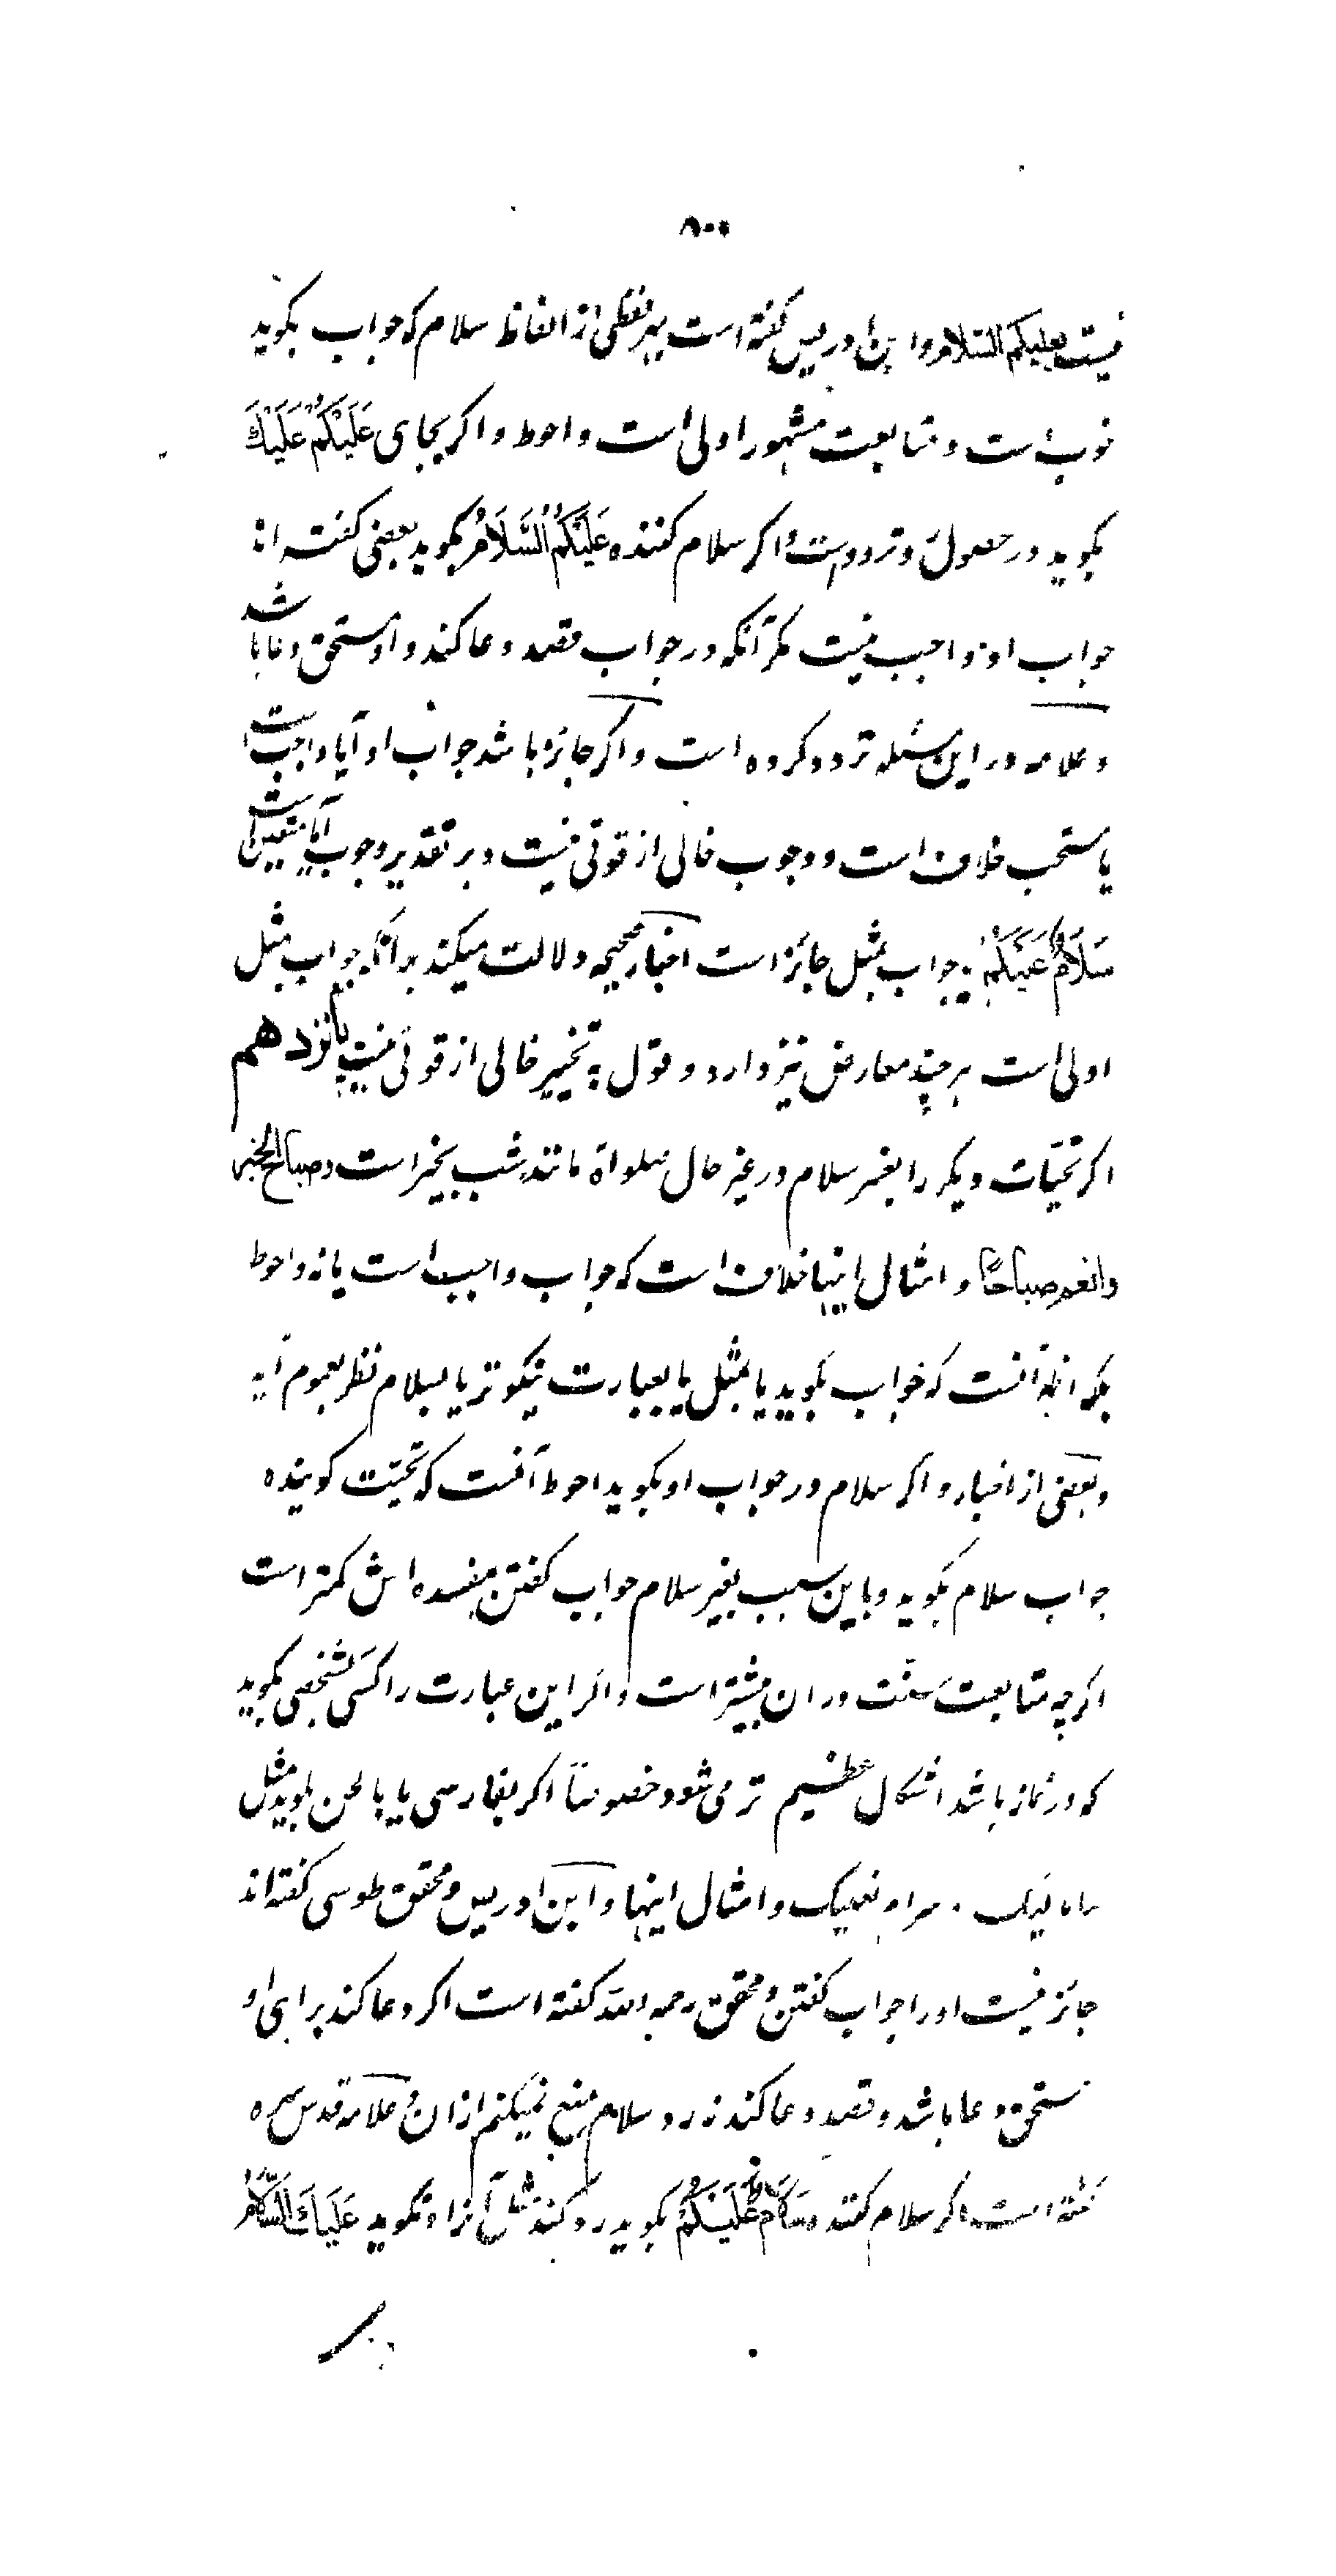 ۸۰۰
نیست بعلیکم السلام و ابن ادریس گفته است بهر لفظی از الفاظ سلام که جواب بکوید
خوب است و متابعت مشهور اولی است و احوط و اکر بجای عَلَیْکُمْ عَلَیْكَ
بکوید در حصول و تردد است و اکر سلام کننده عَلَیْکُمُ السَّلَامُ بکوید بعضی کفته اند
جواب او واجب نیست مکر آنکه در جواب قصد دعا کند و او مستحق دعا باشد
و علامه در این مسئله تردد کرده است و اکر جایز باشد جواب او آیا واجب است
یا مستحب خلاف است و وجوب خالی از قوتی نیست و بر تقدیر وجوب آیا متعین است
سَلَامٌ عَلَیْکُمْ یا جواب بمثل جائز است اخبار صحیحه دلالت میکند برانکه جواب بمثل
اولی است هر چند معارض نیز دارد و قول به تخییر خالی از قوتی نیست پانزدهم
اکر تحیّات دیکر را بغیر سلام در غیر حال صلواة مانند شب بخیر است و صباح الخیر
وانعم صباحًا و امثال اینها خلاف است که جواب واجب است یا نه و احوط
بکه انه آنست که جواب بکوید یا بمثل یا بعبارت نیکوتر یا بسلام نظر بعموم آیه
و بعضی از اخبار و اکر سلام در جواب او بکوید احوط آنست که تحیّت کوینده
جواب سلام بکوید و باین سبب بغیر سلام جواب کفتن مفسده اش کمتر است
اکرچه متابعت سنّت در ان بیشتر است و اکر این عبارت را کسی بشخصی بکوید
که در نماز باشد اشکال عظیم تر می شود خصوصاً اکر بفارسی یا با لحن بکوید مثل
سام لیک . مرام نعیک و امثال اینها و ابن ادریس و محقق طوسی کفته اند
جائز نیست او را جواب کفتن و محقق رحمه الله کفته است اکر دعا کند برای او
مستحق دعا باشد و قصد دعا کند نه رد سلام منع نمیکنم از ان و علامه قدس سره
کفته است اکر سلام کننده سَلَامٌ عَلَیْکُمْ بکوید رد کند مثل آنرا و نکوید عَلَیْكَ السَّلَامُ